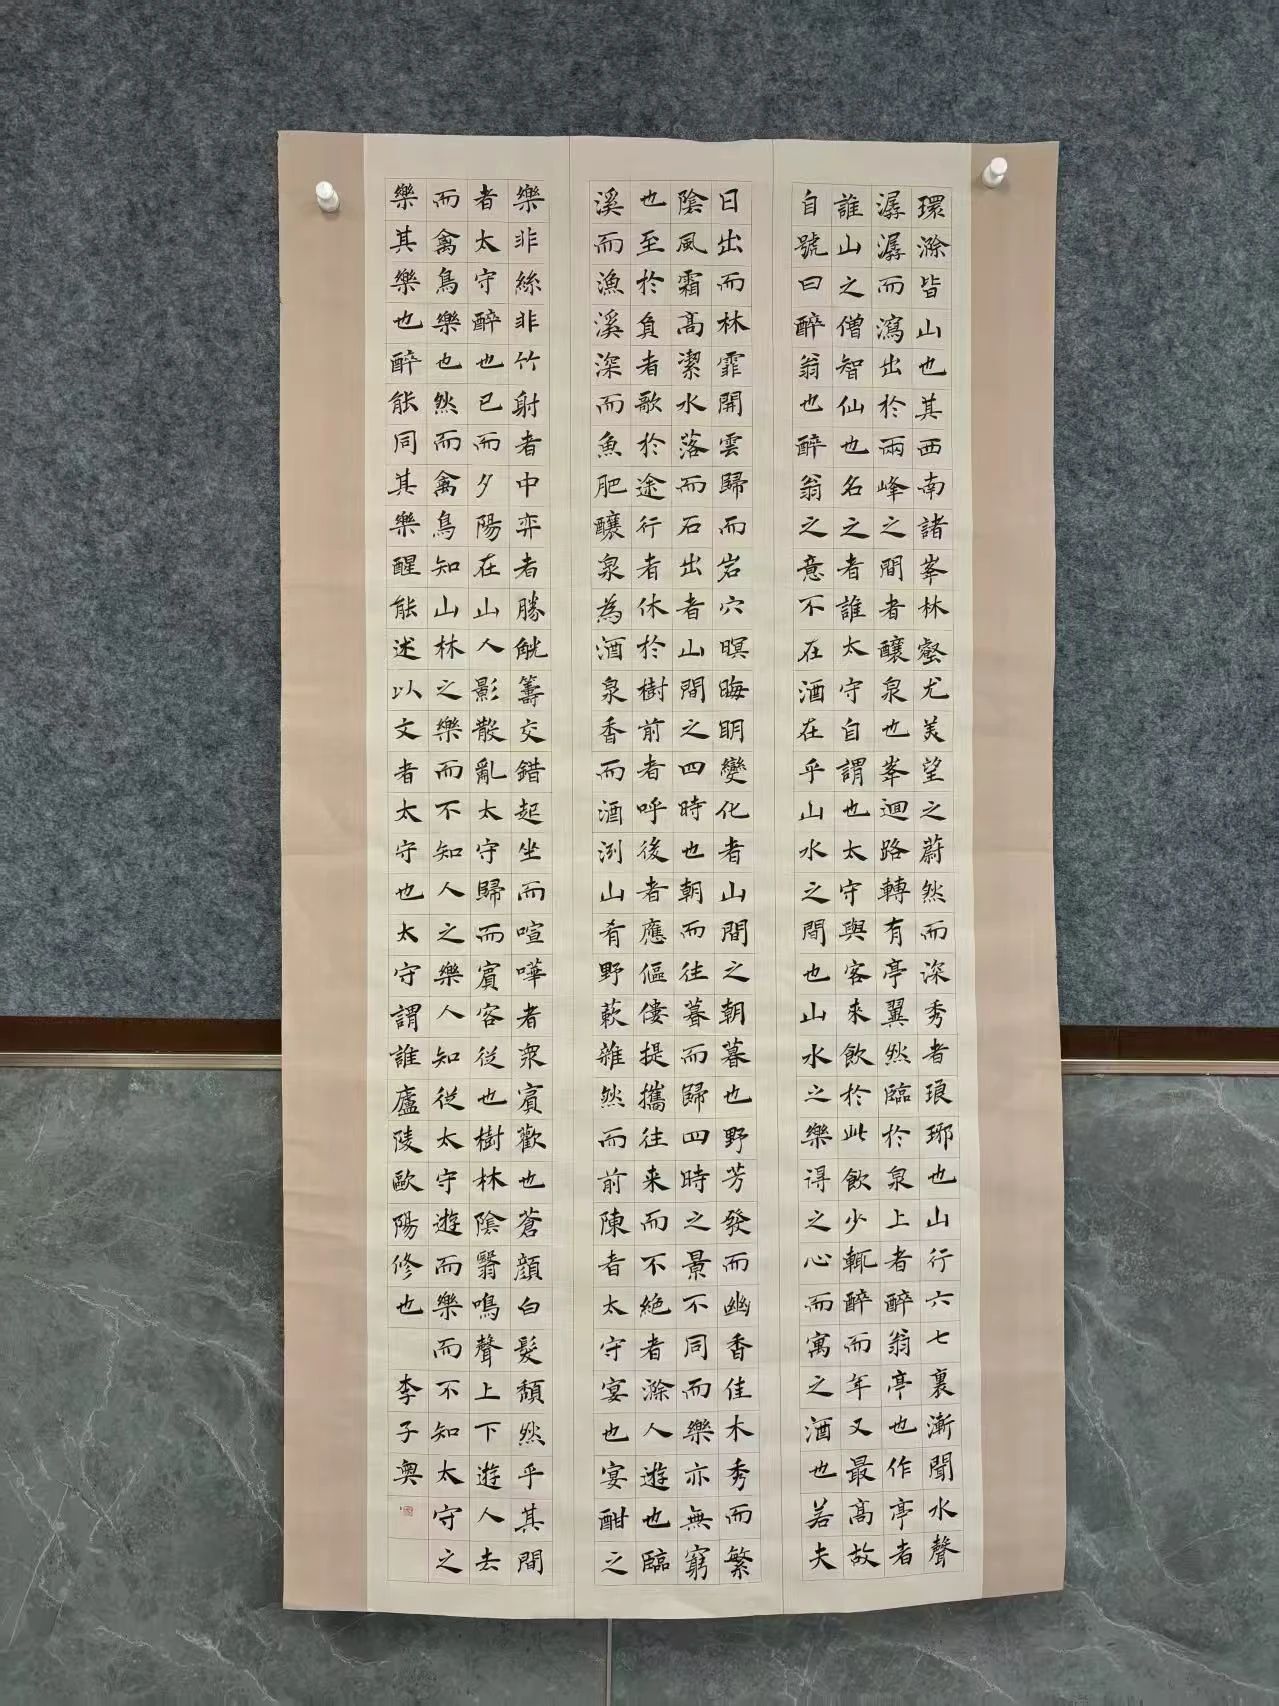 環滁皆山也其西南諸峯林壑尤美望之蔚然而深秀者琅琊也山行六七裏漸聞水聲
潺潺而瀉出於兩峰之間者釀泉也峯迴路轉有亭翼然臨於泉上者醉翁亭也作亭者
誰山之僧智仙也名之者誰太守自謂也太守與客来飲於此飲少輒醉而年又最高故
自號曰醉翁也醉翁之意不在酒在乎山水之間也山水之樂得之心而寓之酒也若夫
日出而林霏開雲歸而岩穴暝晦明變化者山間之朝暮也野芳發而幽香佳木秀而繁
陰風霜高潔水落而石出者山間之四時也朝而往暮而歸四時之景不同而樂亦無窮
也至於負者歌於途行者休於樹前者呼後者應傴僂提攜往来而不絕者滁人遊也臨
溪而漁溪深而魚肥釀泉為酒泉香而酒洌山肴野蔌雜然而前陳者太守宴也宴酣之
樂非絲非竹射者中弈者勝觥籌交錯起坐而喧嘩者衆賓歡也蒼顔白髮頹然乎其間
者太守醉也已而夕陽在山人影散亂太守歸而賓客從也樹林陰翳鳴聲上下遊人去
而禽鳥樂也然而禽鳥知山林之樂而不知人之樂人知從太守遊而樂而不知太守之
樂其樂也醉能同其樂醒能述以文者太守也太守謂誰廬陵歐陽修也 李子奧